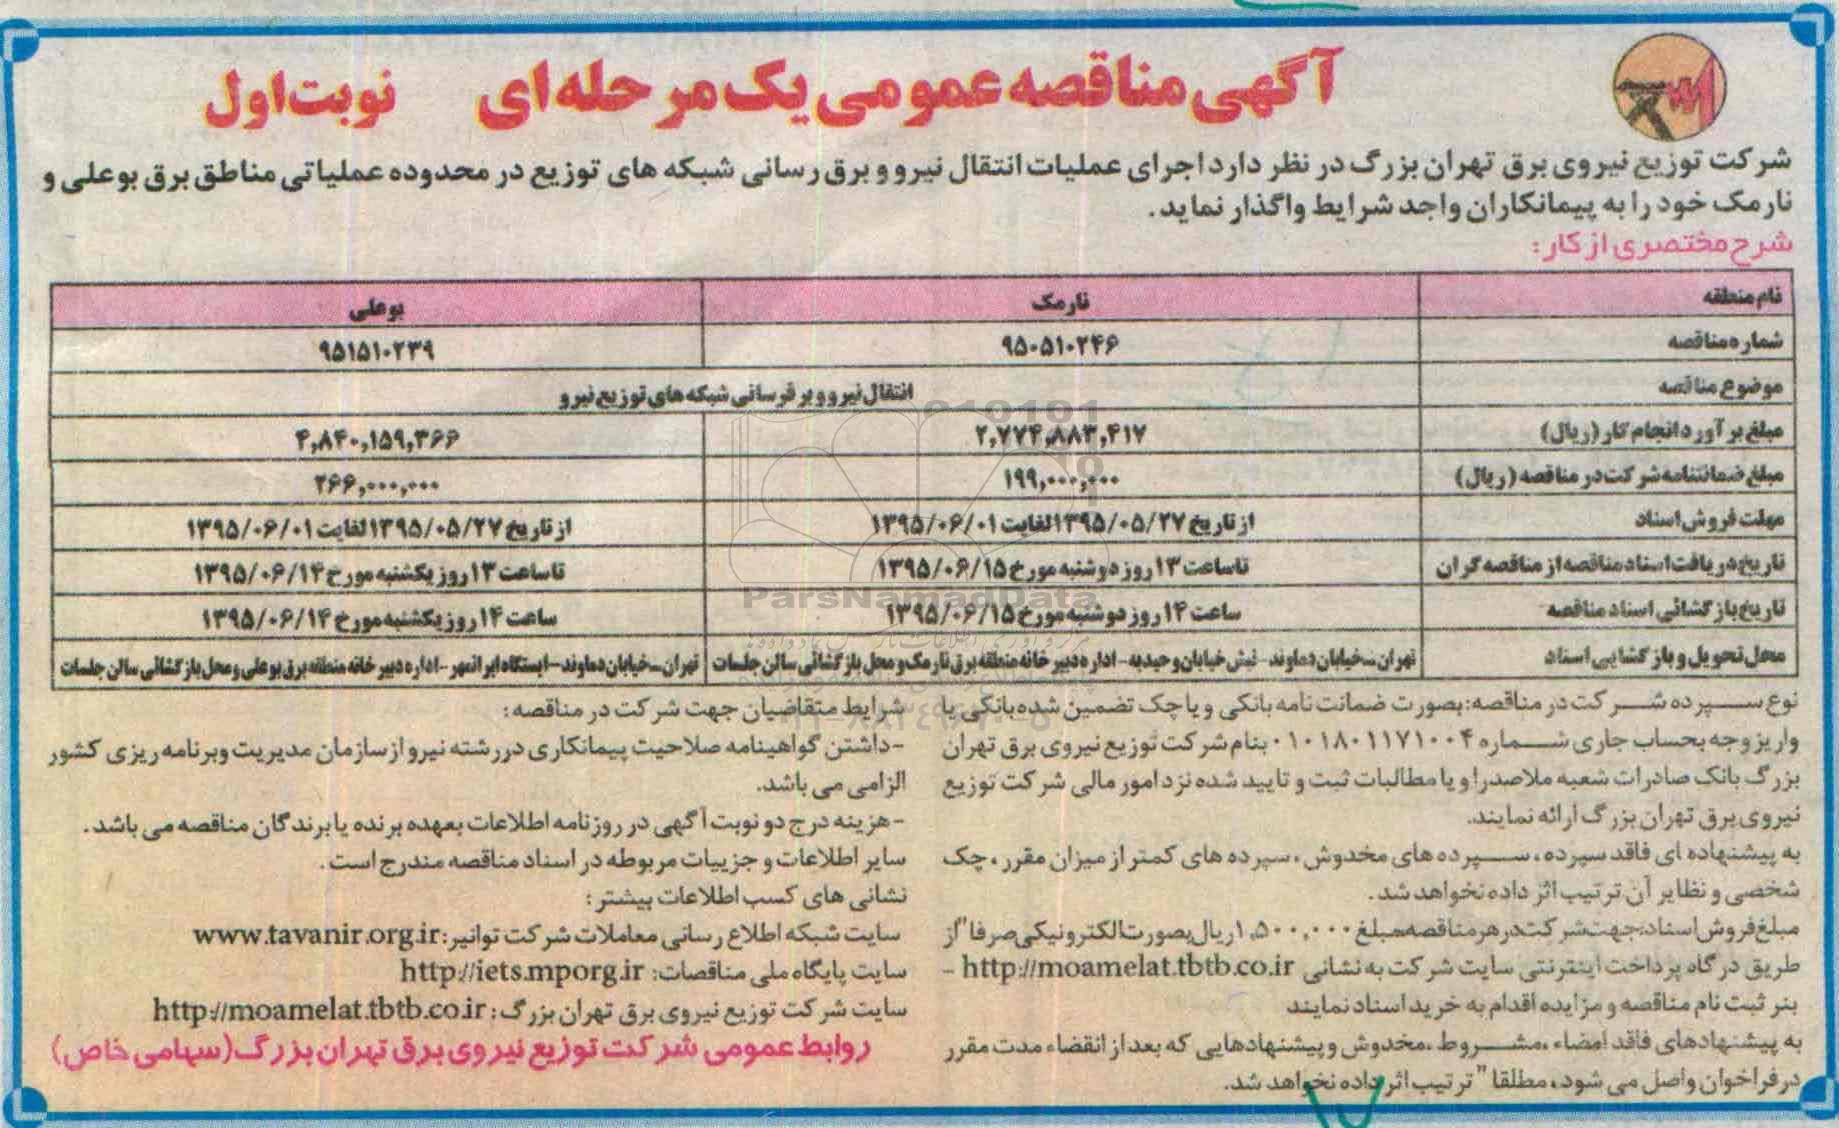 آگهی مناقصه عمومی یک مرحله ای نوبت اول
شرکت توزیع نیروی برق تهران بزرگ در نظر دارد اجرای عملیات انتقال نیرو و برق رسانی شبکه های توزیع در محدوده عملیاتی مناطق برق بوعلی و
نارمک خود را به پیمانکاران واجد شرایط واگذار نماید.
شرح مختصری از کار:
نام منطقه نارمک بوعلی
شماره مناقصه ۹۵۰۵۱۰۲۴۶ ۹۵۱۵۱۰۲۳۹
موضوع مناقصه انتقال نیرو و برقرسانی شبکه های توزیع نیرو
مبلغ برآورد انجام کار (ریال) ۲,۷۷۴,۸۸۳,۴۱۷ ۴,۸۴۰,۱۵۹,۳۶۶
مبلغ ضمانتنامه شرکت در مناقصه (ریال) ۱۹۹,۰۰۰,۰۰۰ ۲۶۶,۰۰۰,۰۰۰
مهلت فروش اسناد از تاریخ ۱۳۹۵/۰۵/۲۷ لغایت ۱۳۹۵/۰۶/۰۱ از تاریخ ۱۳۹۵/۰۵/۲۷ لغایت ۱۳۹۵/۰۶/۰۱
تاریخ دریافت اسناد مناقصه از مناقصه گران تا ساعت ۱۳ روز دوشنبه مورخ ۱۳۹۵/۰۶/۱۵ تا ساعت ۱۳ روز یکشنبه مورخ ۱۳۹۵/۰۶/۱۴
تاریخ بازگشائی اسناد مناقصه ساعت ۱۴ روز دوشنبه مورخ ۱۳۹۵/۰۶/۱۵ ساعت ۱۴ روز یکشنبه مورخ ۱۳۹۵/۰۶/۱۴
محل تحویل و بازگشایی اسناد تهران – خیابان دماوند – نبش خیابان وحیدیه – اداره دبیرخانه منطقه برق نارمک و محل بازگشائی سالن جلسات تهران – خیابان دماوند – ایستگاه ایرانمهر – اداره دبیرخانه منطقه برق بوعلی و محل بازگشائی سالن جلسات
نوع سپرده شرکت در مناقصه: بصورت ضمانت نامه بانکی و یا چک تضمین شده بانکی یا
واریز وجه بحساب جاری شماره ۰۱۰۱۸۰۱۱۷۱۰۰۴ بنام شرکت توزیع نیروی برق تهران
بزرگ بانک صادرات شعبه ملاصدرا و یا مطالبات ثبت و تایید شده نزد امور مالی شرکت توزیع
نیروی برق تهران بزرگ ارائه نمایند.
به پیشنهاده ای فاقد سپرده، سپرده های مخدوش، سپرده های کمتر از میزان مقرر، چک
شخصی و نظایر آن ترتیب اثر داده نخواهد شد.
مبلغ فروش اسناد: جهت شرکت در هر مناقصه مبلغ ۱,۵۰۰,۰۰۰ ریال بصورت الکترونیکی صرفا" از
طریق درگاه پرداخت اینترنتی سایت شرکت به نشانی http://moamelat.tbtb.co.ir -
بنر ثبت نام مناقصه و مزایده اقدام به خرید اسناد نمایند
به پیشنهادهای فاقد امضاء، مشروط، مخدوش و پیشنهادهایی که بعد از انقضاء مدت مقرر
در فراخوان واصل می شود، مطلقا" ترتیب اثر داده نخواهد شد.
شرایط متقاضیان جهت شرکت در مناقصه:
-داشتن گواهینامه صلاحیت پیمانکاری در رشته نیرو از سازمان مدیریت و برنامه ریزی کشور
الزامی می باشد.
-هزینه درج دو نوبت آگهی در روزنامه اطلاعات بعهده برنده یا برندگان مناقصه می باشد.
سایر اطلاعات و جزییات مربوطه در اسناد مناقصه مندرج است.
نشانی های کسب اطلاعات بیشتر:
سایت شبکه اطلاع رسانی معاملات شرکت توانیر: www.tavanir.org.ir
سایت پایگاه ملی مناقصات: http://iets.mporg.ir
سایت شرکت توزیع نیروی برق تهران بزرگ: http://moamelat.tbtb.co.ir
روابط عمومی شرکت توزیع نیروی برق تهران بزرگ (سهامی خاص)
ParsNamadData